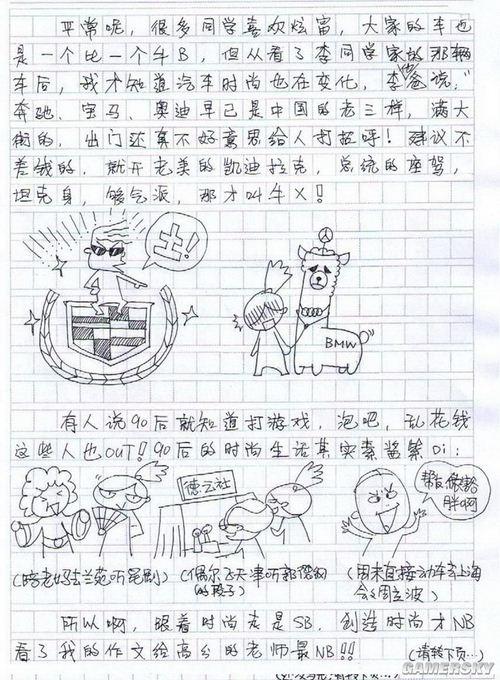 平常呢，很多同学喜欢炫富，大家的车也
是一个比一个牛B，但从看了李同学家的那辆
车后，我才知道汽车时尚也在变化，李爸说，"
奔驰、宝马、奥迪早已是中国的老三样，满大
街的，出门还真不好意思给人打招呼！建议不
差钱的，就开老美的凯迪拉克，总统的座驾，
坦克身，够气派，那才叫牛X！
土！
BMW
有人说90后就知道打游戏，泡吧，乱花钱
这些人也OUT！90后的时尚生活其实素酱紫Di：
德云社
帮
胖啊
(陪老妈去兰苑听昆剧)
(偶尔飞天津听郭德纲
的段子)
(周末直接动车去上海
会会周立波)
所以啊，跟着时尚走是SB，创造时尚才NB
看了我的作文给高分的老师最NB!!
(请转下页…)
GAMERSKY